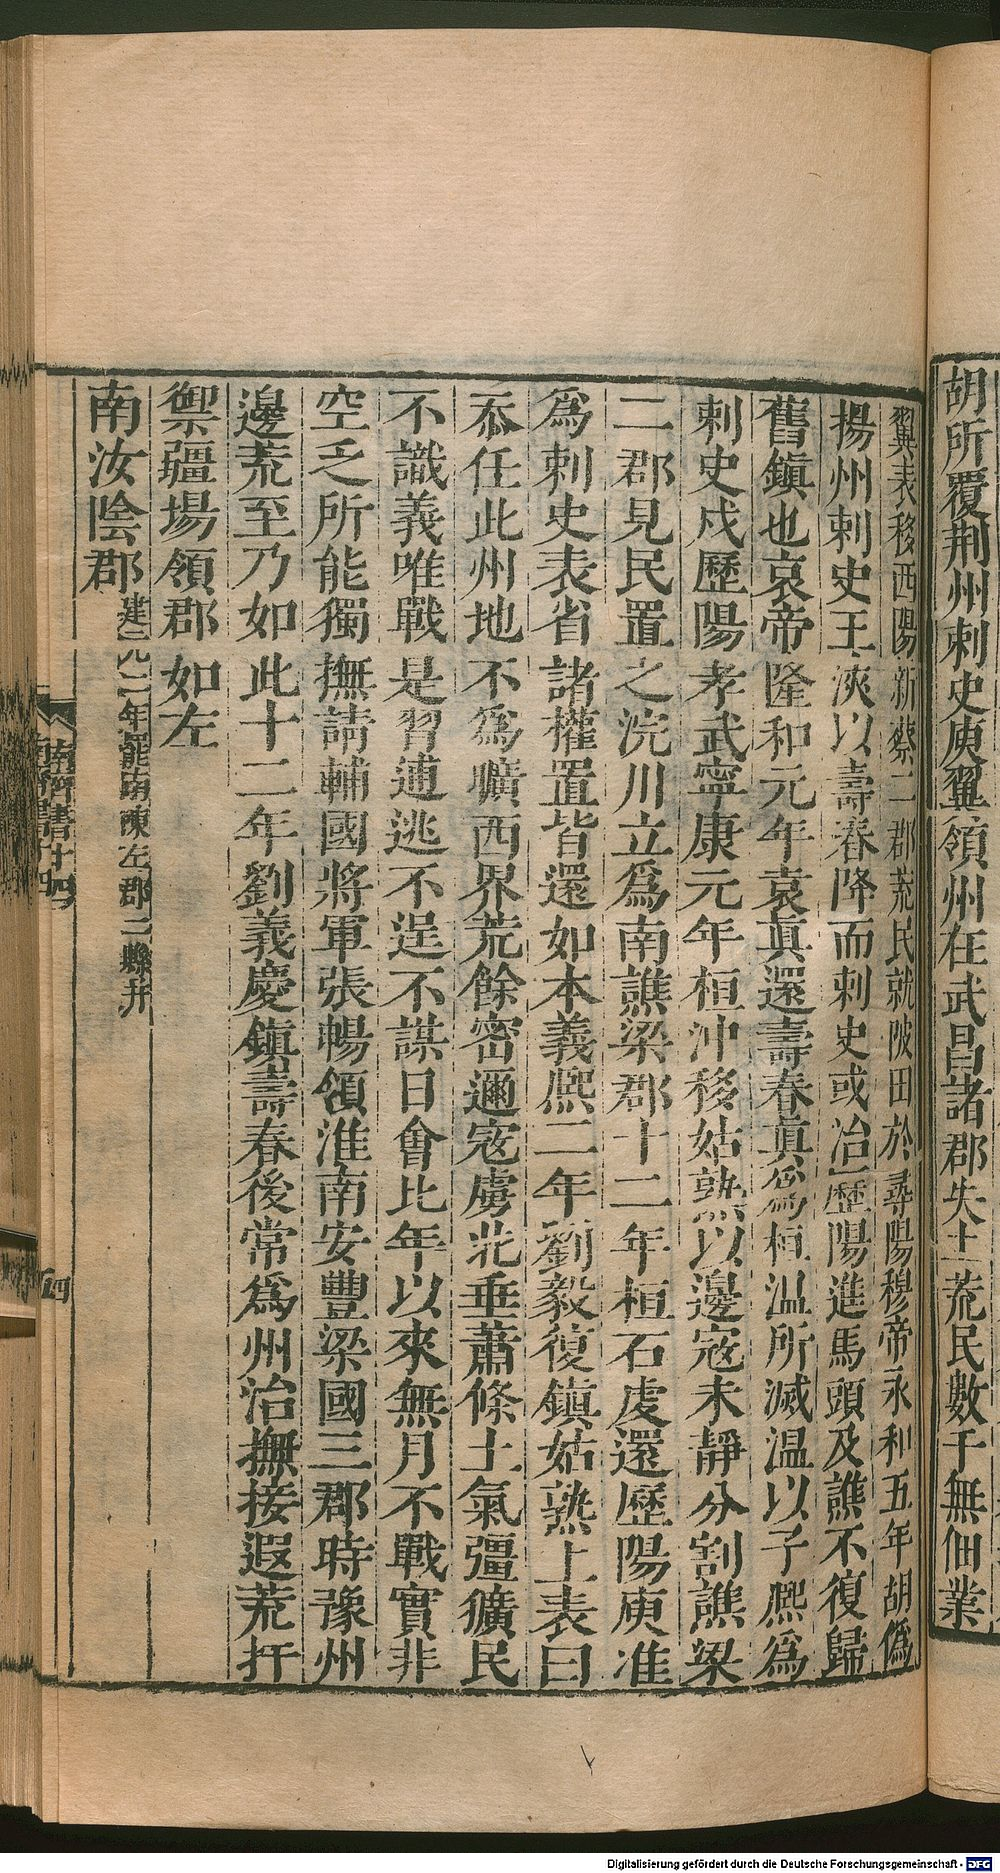 胡所覆荆州刺史庾翼領州在武昌諸郡失土荒民數千無佃業
翼表移西陽新蔡二郡荒民就陂田於尋陽穆帝永和五年胡僞
揚州刺史王浹以壽春降而刺史或治歷陽進馬頭及譙不復歸
舊鎮也哀帝隆和元年袁真還壽春真爲桓温所滅温以子熈爲
刺史戍歷陽孝武寧康元年桓沖移姑熟以邊宼未靜分割譙梁
二郡見民置之浣川立爲南譙梁郡十二年桓石虔還歷陽庾准
爲刺史表省諸權置皆還如本義熈二年劉毅復鎮姑熟上表曰
忝任此州地不爲曠西界荒餘密邇宼虜北垂蕭條土氣彊獷民
不識義唯戰是習逋逃不逞不謀日會比年以來無月不戰實非
空乏所能獨撫請輔國將軍張暢領淮南安豐梁國三郡時豫州
邊荒至乃如此十二年劉義慶鎮壽春後常爲州治撫接遐荒扞
禦疆場領郡如左
南汝陰郡建元二年罷南陳左郡二縣并
南齊書十四
四
Digitalisierung gefördert durch die Deutsche Forschungsgemeinschaft - DFG